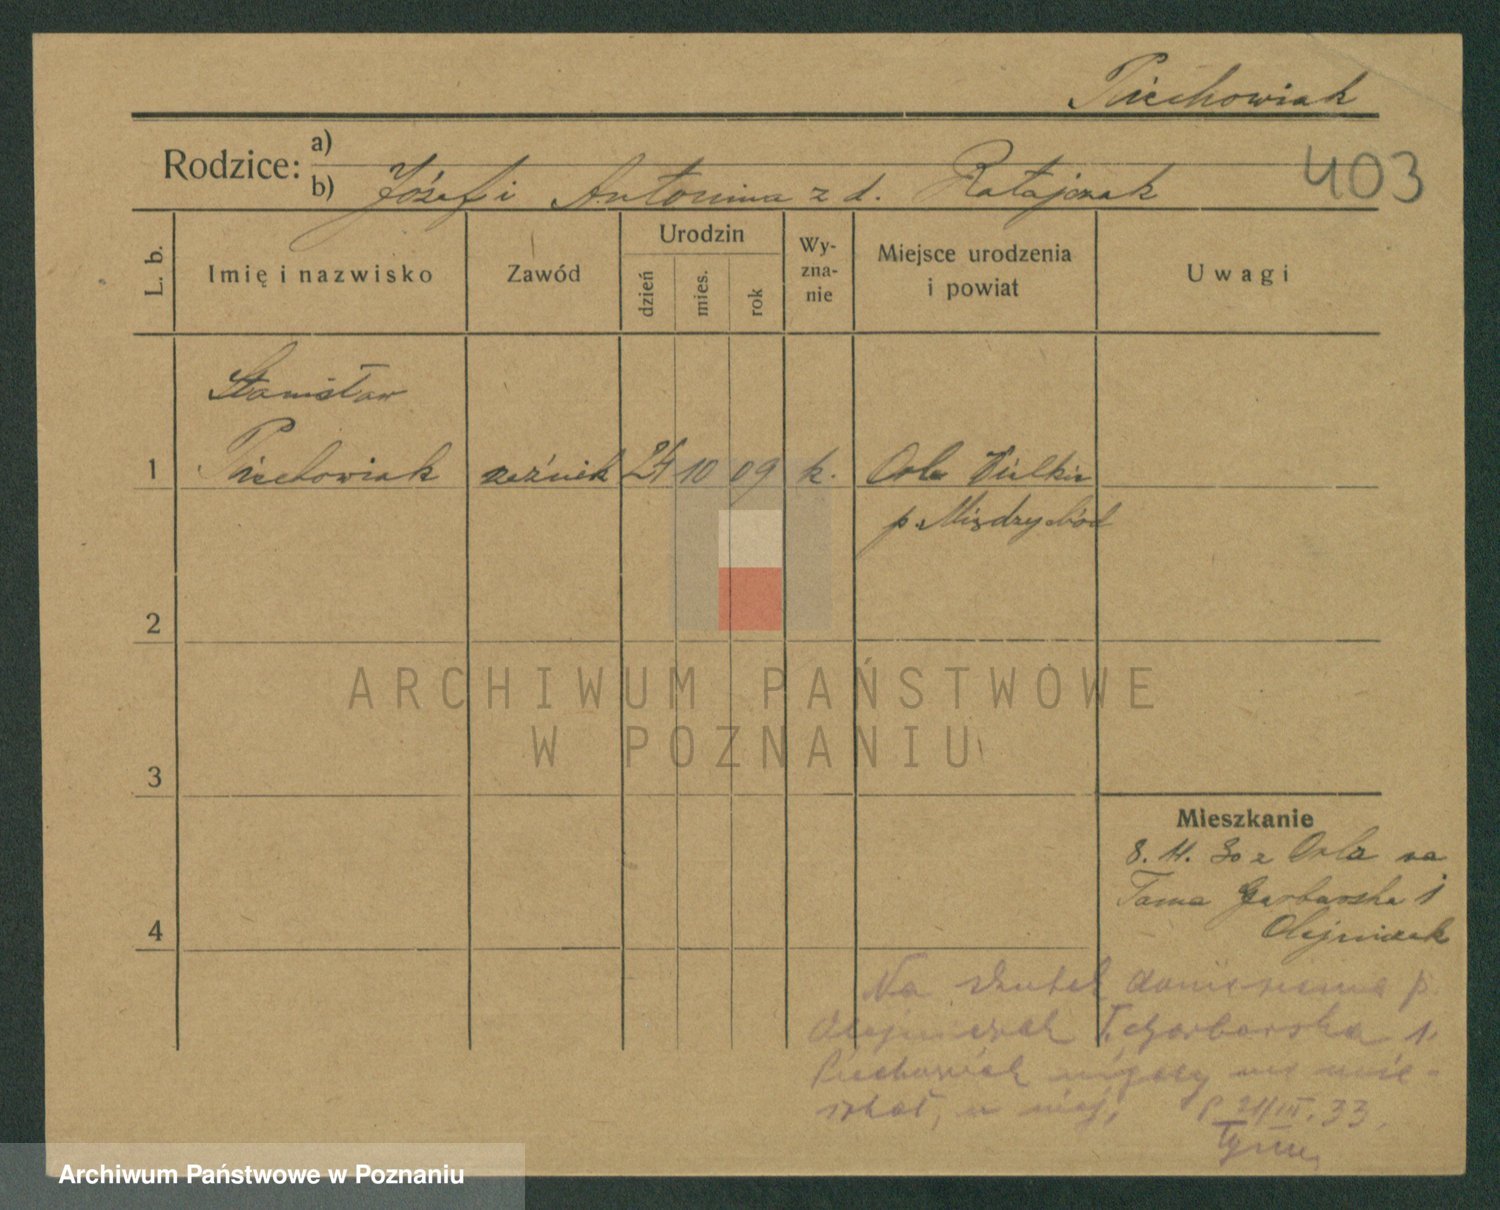 Piechowiak
403
Rodzice: a)
b) Józef i Antonina z d. Ratajczak
L. b.
Imię i nazwisko
Zawód
Urodzin
dzień
mies.
rok
Wy-
zna-
nie
Miejsce urodzenia
i powiat
Uwagi
Stanisław
1 Piechowiak rzeźnik 24 10 09 k. Orla Wielkie
p. Międzybód
2
ARCHIWUM PAŃSTWOWE
W POZNANIU
3
Mieszkanie
8. 11. 30 z Orla na
Tama Garbarska 1
Olejniczak
4
Na skutek doniesienia p.
Olejniczak T. Garbarska 1.
Piechowiak nigdy nie mie-
szkał, u niej, P. 21/III. 33.
Archiwum Państwowe w Poznaniu